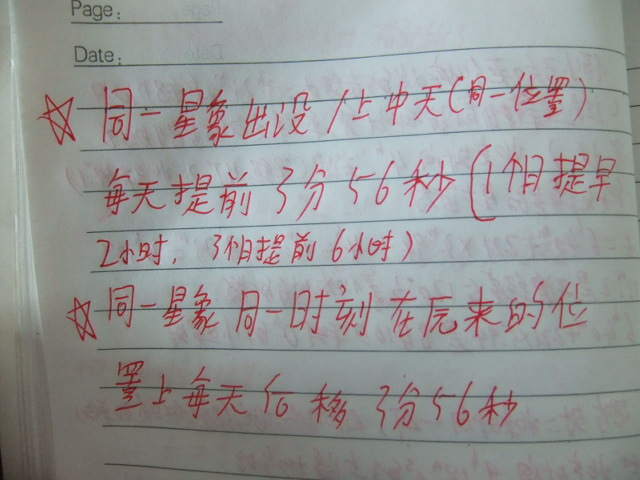 Page:
Date:
☆ 同一星象出没/上中天(同一位置)
每天提前3分56秒(1个月提早
2小时,3个月提前6小时)
☆ 同一星象同一时刻在原来的位
置上每天后移3分56秒